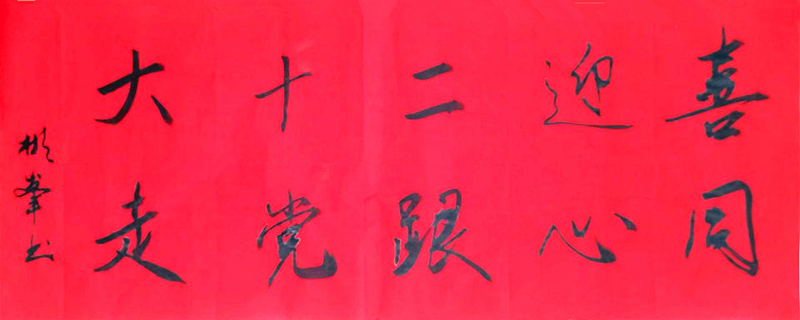 喜迎二十大
同心跟党走
彬峯书